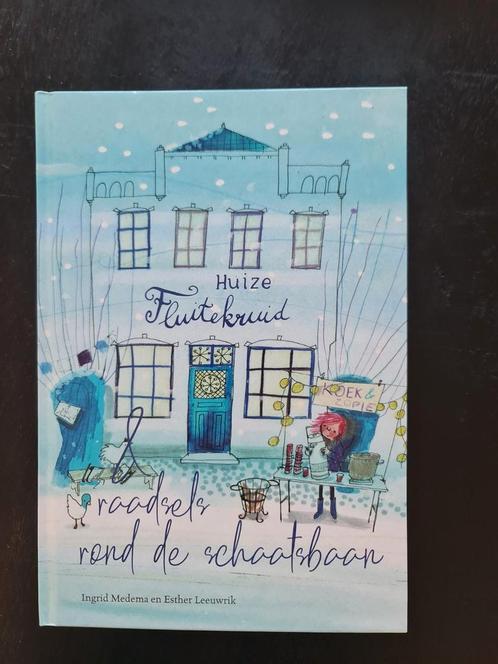 Huize
Fluitekruid
KOEK &
ZOPIE
raadsels
rond de schaatsbaan
Ingrid Medema en Esther Leeuwrik